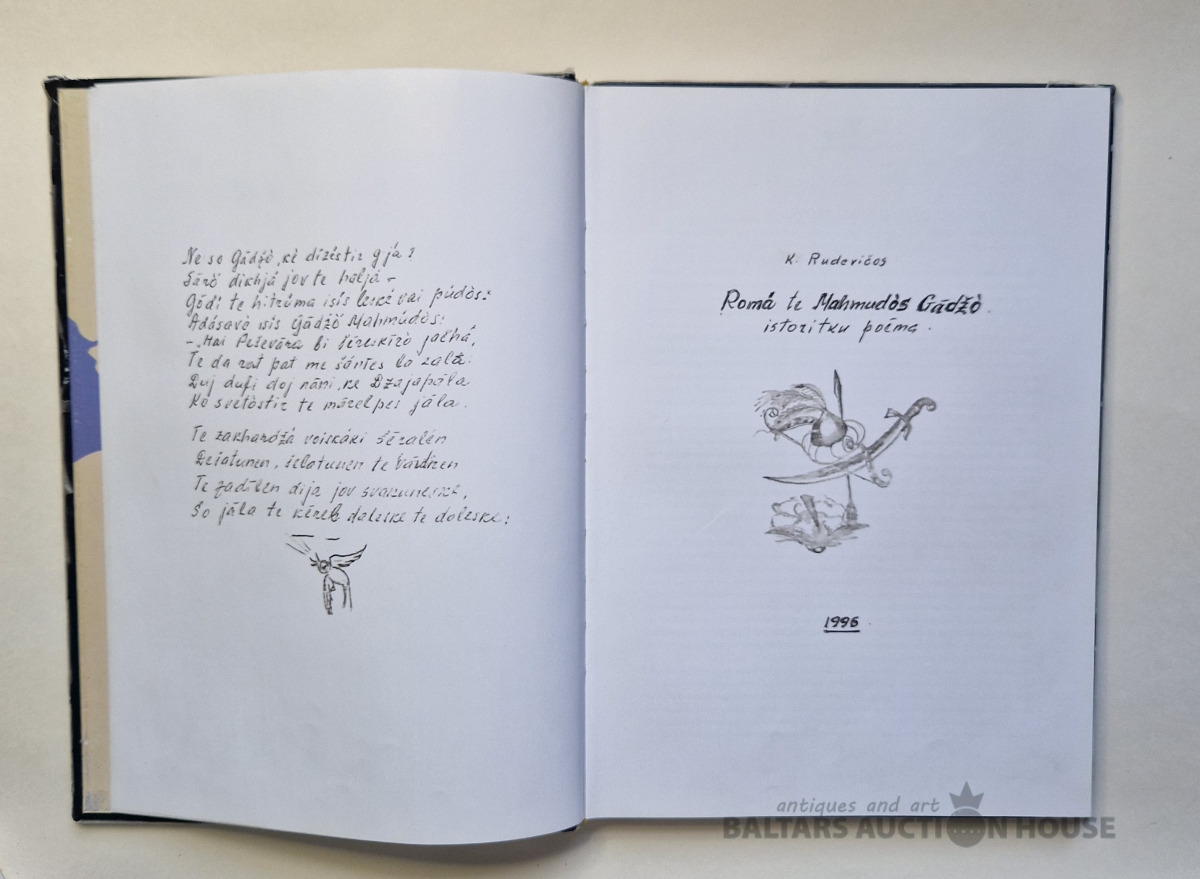 Ne so Gādžò, kè dizéstir gjá?
Sārò dikhjá jov te haljá –
Gōdí te hitrúma isís léské vai púdòs:
Adásavò isís Gādžò Mahmúdòs:
– Mai Peševára bi šéreskíro jačhá,
Te da rat pat me šántes lo zalé.
Duj dufi doj nāni, ke Džajapála
Ko svetòstir te mārelpes jála.
Te zakhardžá voiskáki šēralén
Desatunen, šelatunen te várdizen
Te zadīlen dija jov svakuneske,
So jála te kērel daleske te doleske:
K. Rudevičos
Romá te Mahmudòs Gādžò.
istoritku poēma.
1996
antiques and art
BALTARS AUCTION HOUSE